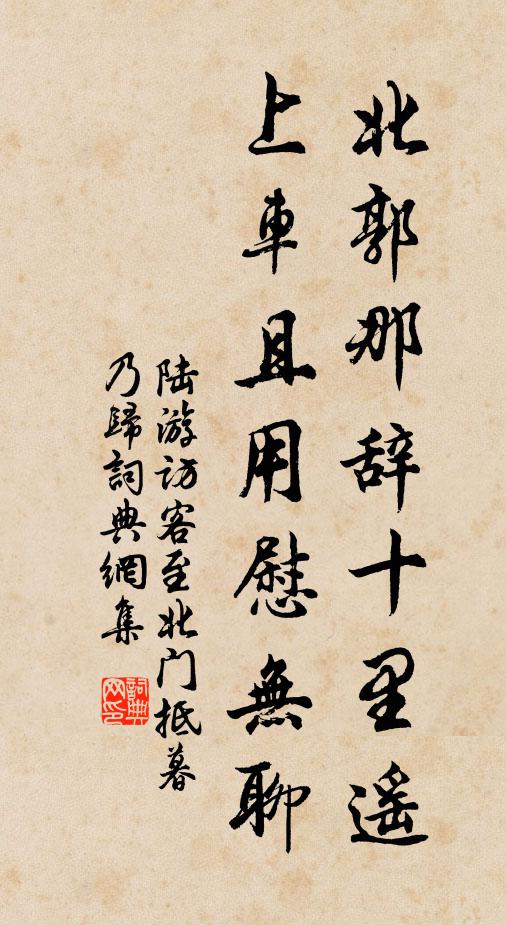 北郭那辞十里遥
上車且用慰無聊
陆游访客至北门抵暮
乃歸詞典網集
詞典
网印